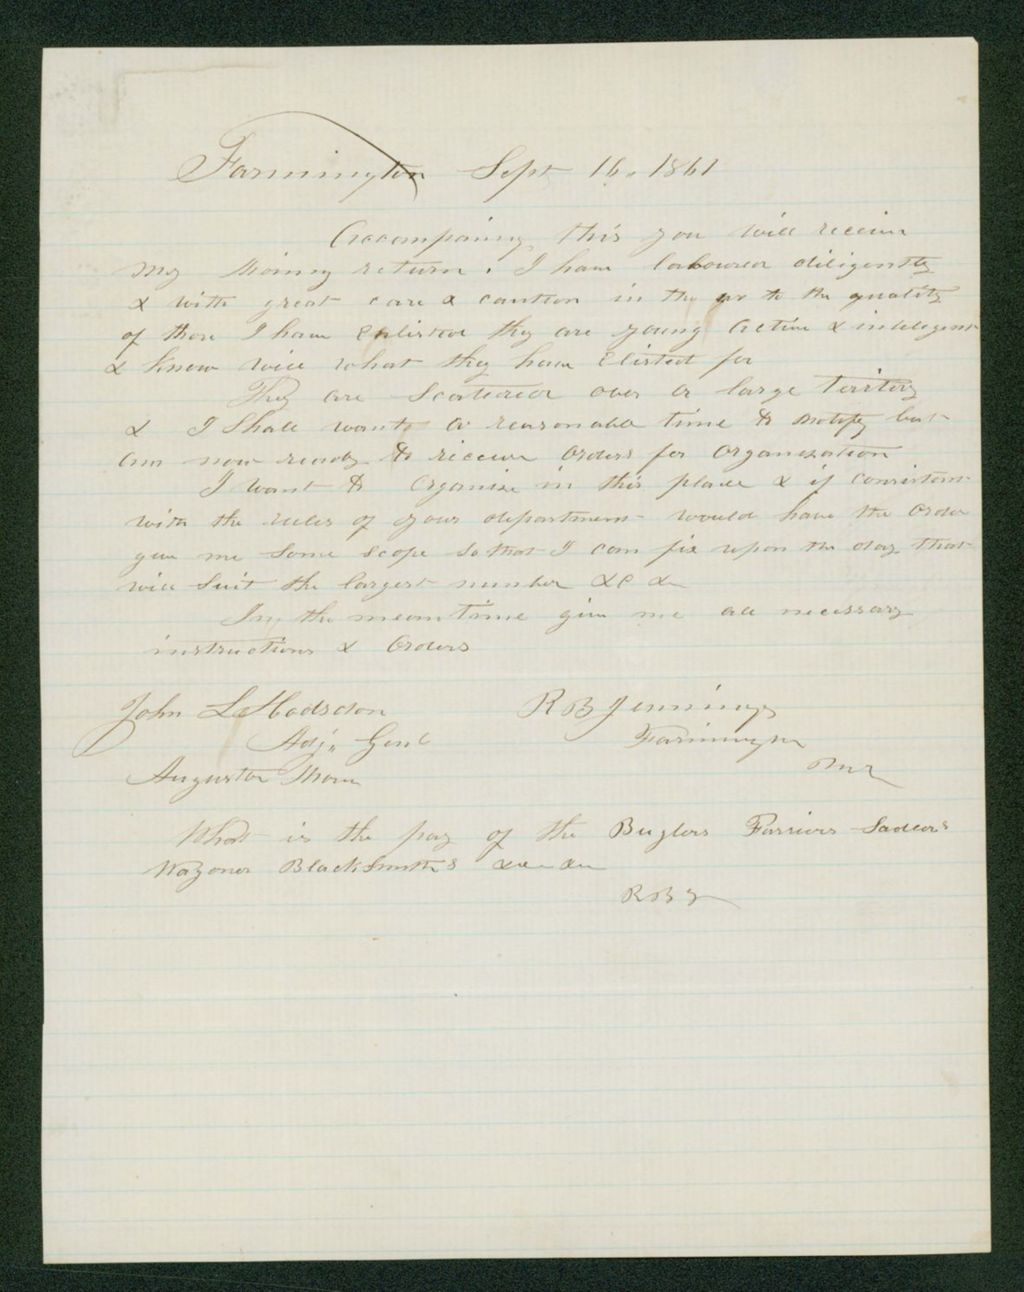 Farmington Sept 16. 1861
Accompaning this you will receive
my return. I have laboured diligently
& with great care & caution in the as to the quality
of those I have Enlisted they are young Active & inteligent
& know well what they have Elisted for
They are Scattered over a large Territory
& I Shall want a reasonable time to notify but
am now ready to receive Orders for Organization
I want to Organise in this place & if consistent
with the rules of your department would have the Order
give me some scope so that I can fix upon the day that
will Suit the largest number &c &c
In the meantime give me all necessary
instructions & Orders
John L Hodsdon R B Jennings
Adj,, Genl Farmington
Augusta Maine Me
What is the pay of the Buglers Farriers Sadlers
Wagoner BlackSmiths
R B J